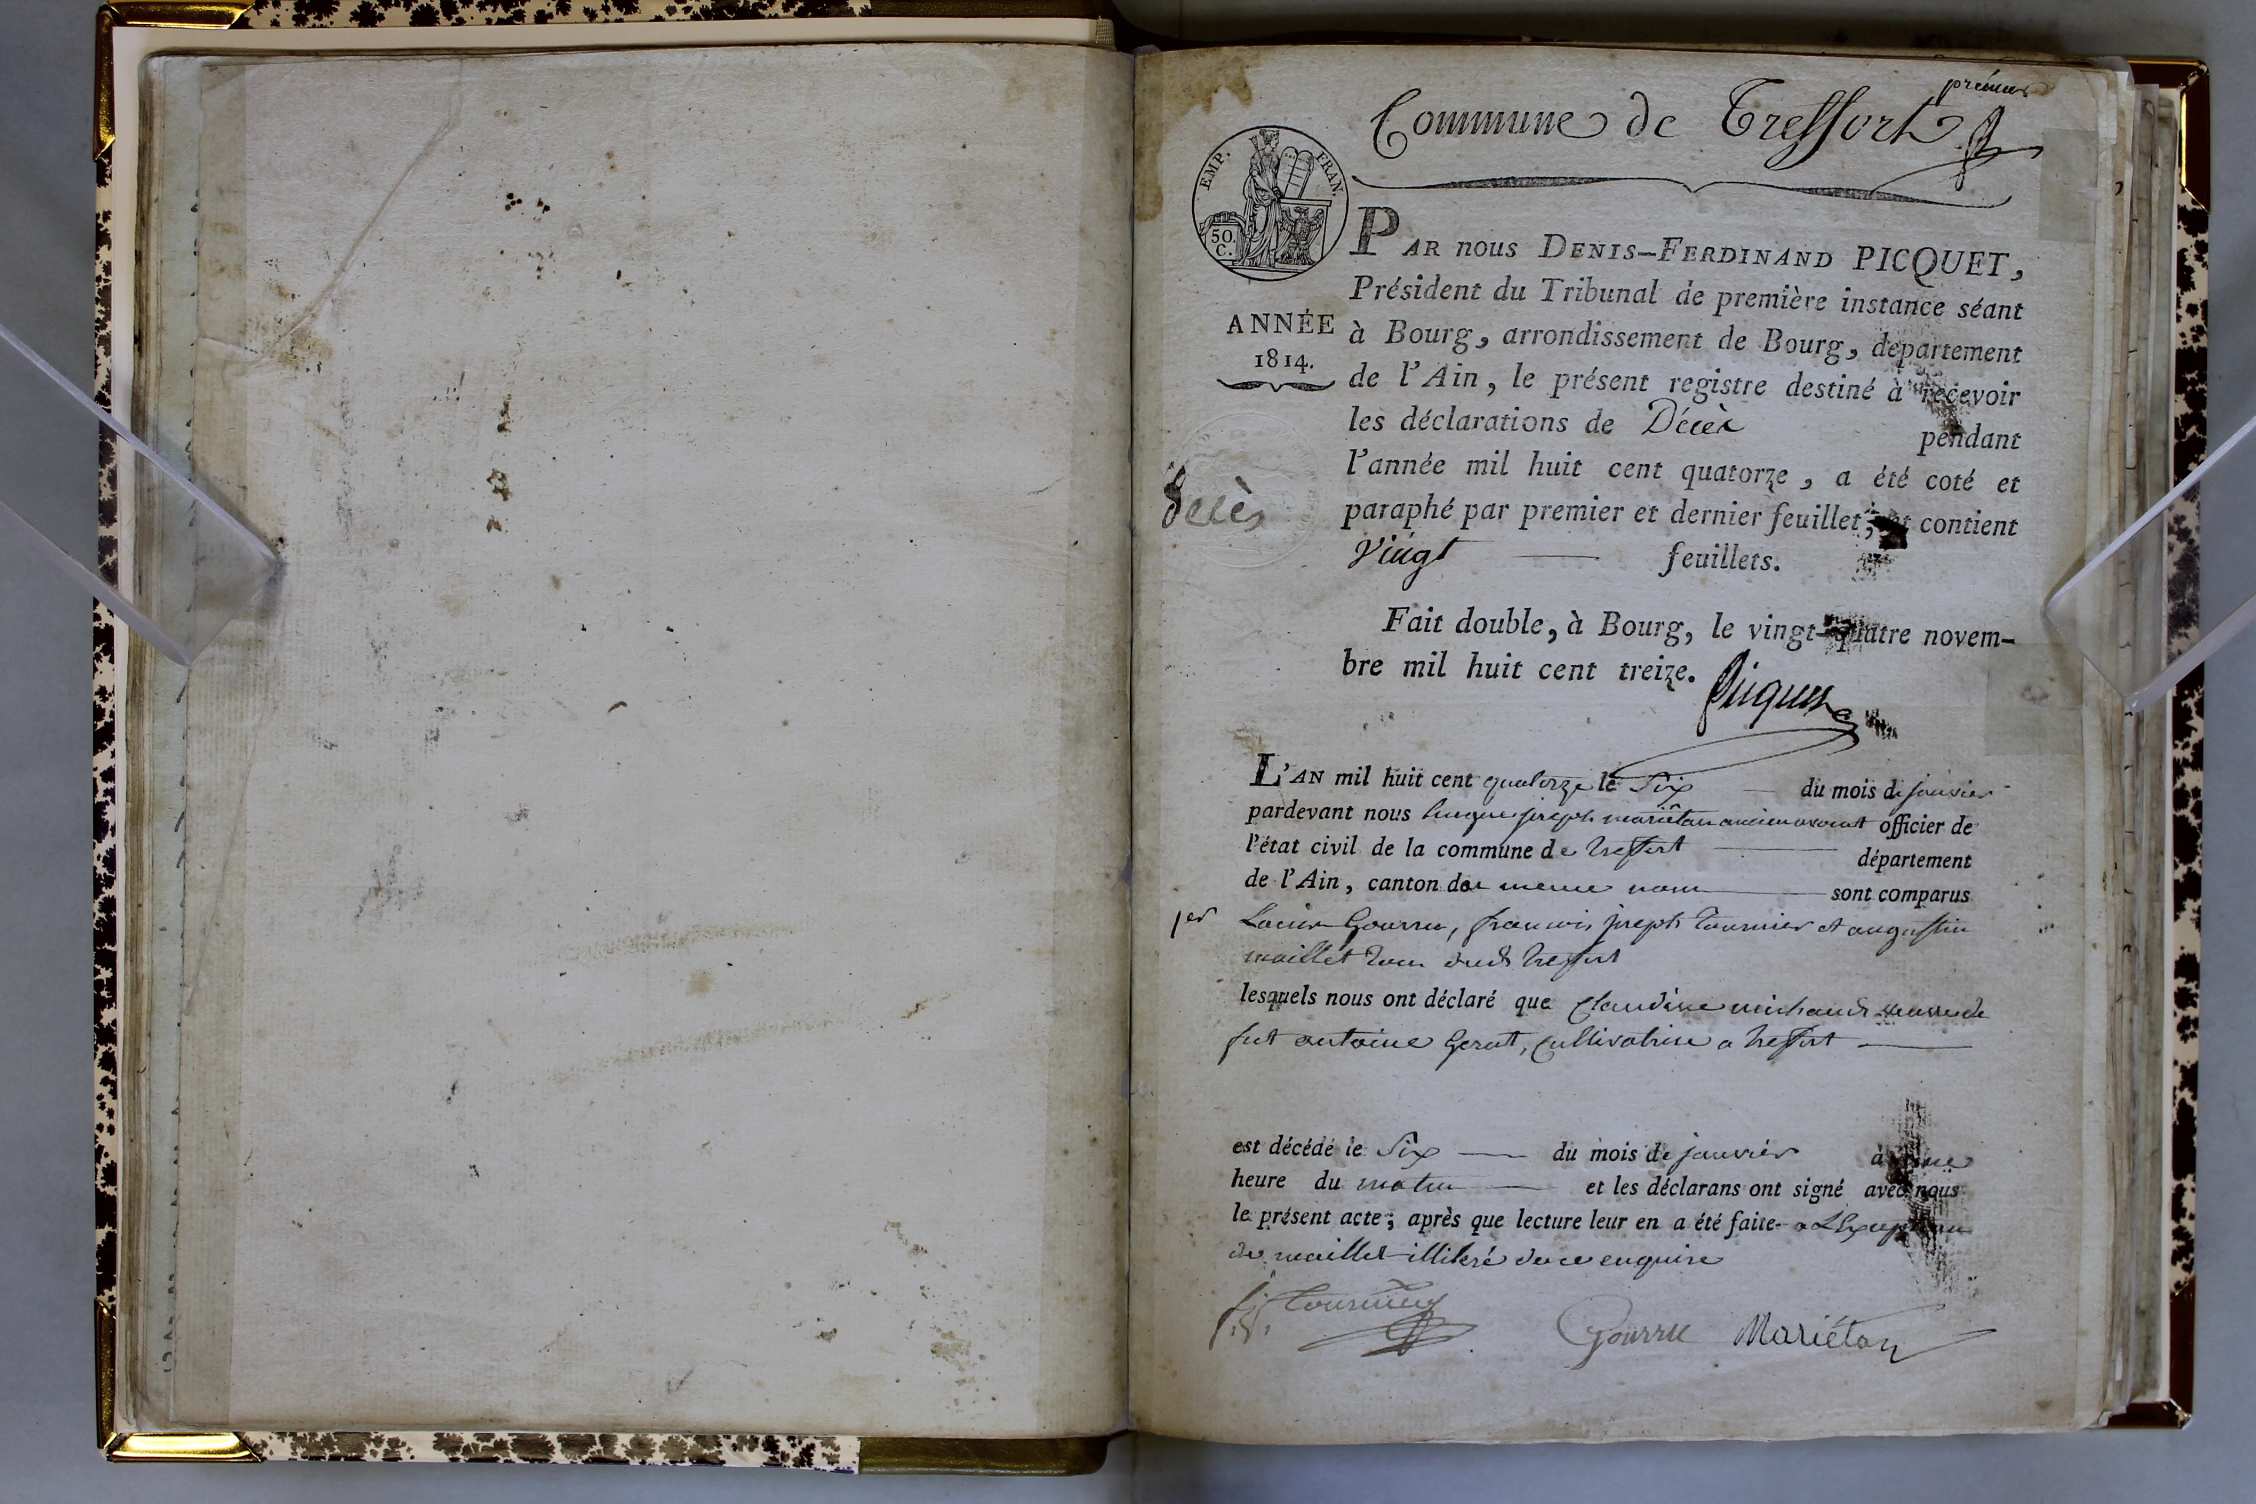 prémier
Commune de Treffort
EMP. FRAN.
50.
C.
PAR nous DENIS-FERDINAND PICQUET,
Président du Tribunal de première instance séant
ANNÉE
1814.
à Bourg, arrondissement de Bourg, département
de l'Ain, le présent registre destiné à recevoir
les déclarations de Décès pendant
l'année mil huit cent quatorze, a été coté et
Décès
paraphé par premier et dernier feuillet, et contient
Vingt feuillets.
Fait double, à Bourg, le vingt-quatre novem-
bre mil huit cent treize.
Picquet
L'AN mil huit cent quatorze le Six du mois de janvier
pardevant nous joseph mariétan ancien avocat officier de
l'état civil de la commune de treffort département
de l'Ain, canton du meme nom sont comparus
1er
Gourru, francois joseph tournier et augustin
maillet tous dudt treffort
lesquels nous ont déclaré que Claudine michaud veuve de
fut antoine Gerat, Cultivatrice a treffort
est décédé le Six du mois de janvier à une
heure du matin et les déclarans ont signé avec nous
le présent acte; après que lecture leur en a été faite a L'Exception
de maillet illiteré de ce enquire
f. j. tournier
Gourru Mariétan